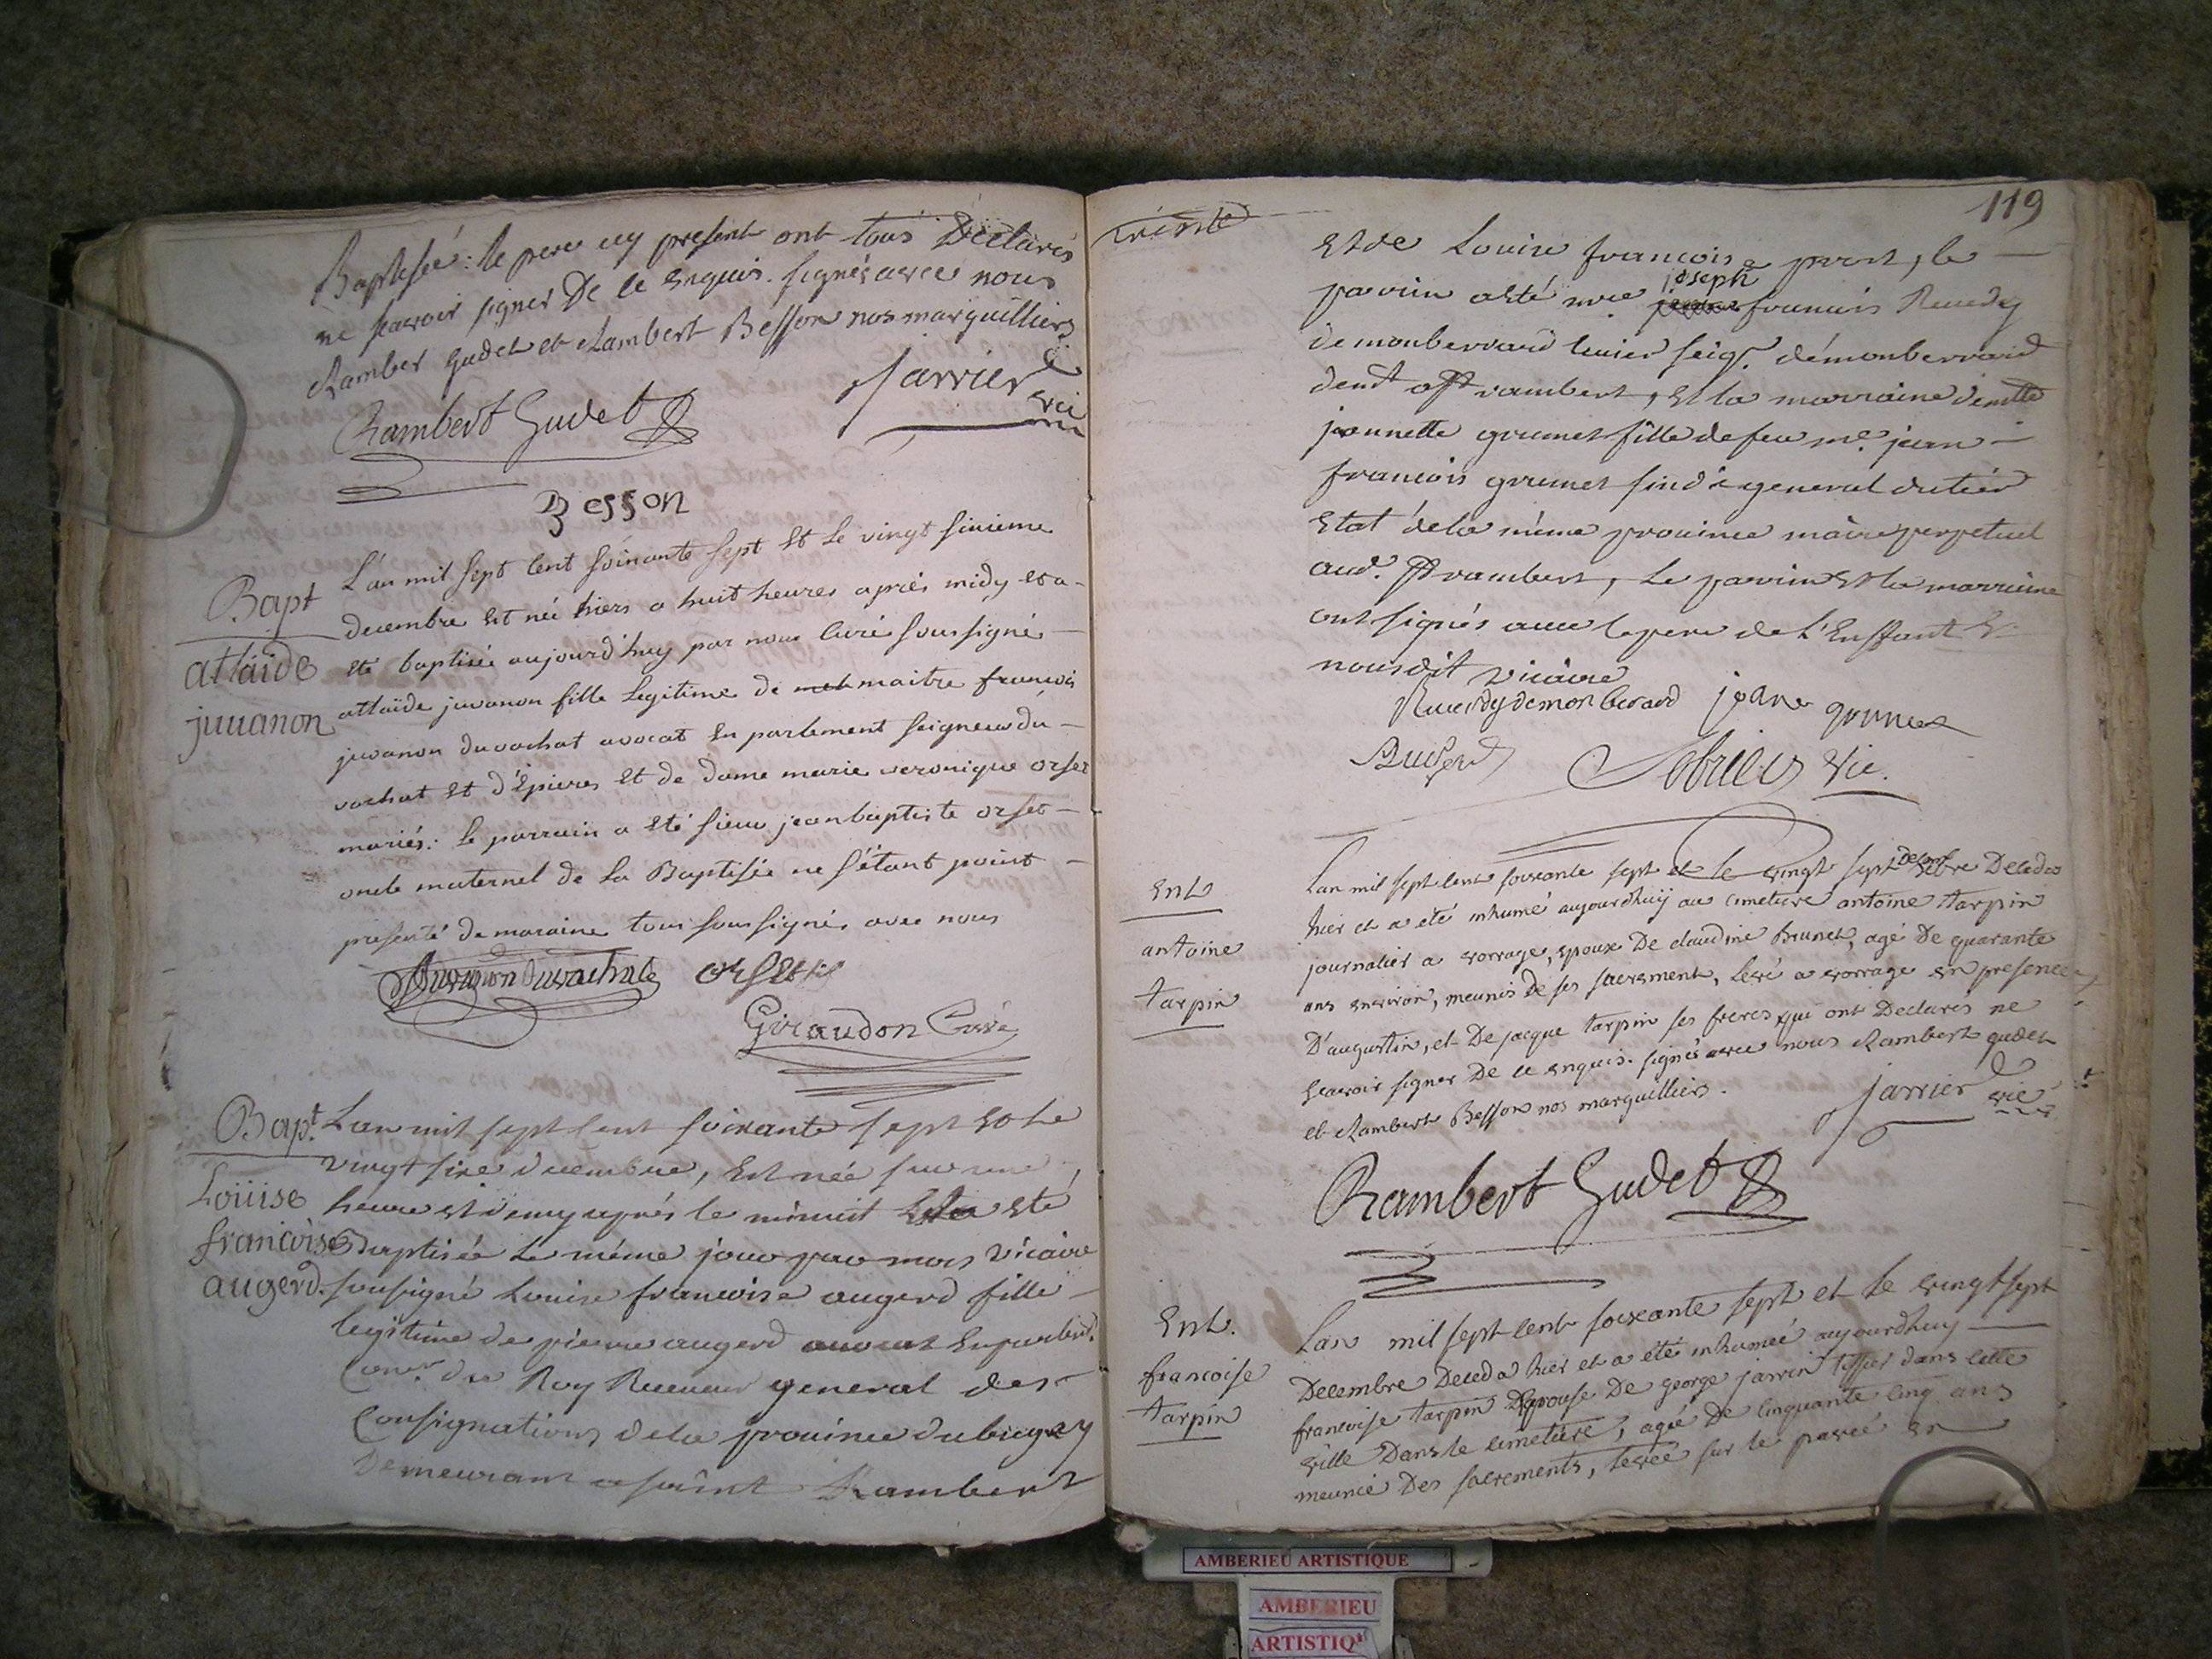 Baptisée: le pere icy present ont tous Declarés
ne scavoir signer De ce enquis. signés avec nous
Rambert gudet et Rambert Besson nos marguilliers
Rambert Gudet
jarrier
vic
Besson
Bapt
attaide
juuanon
L'an mil sept cent soixante sept et le vingt sixieme
decembre est née hiers a huit heures aprés midy et a
eté baptisée aujourd'huy par nous curé soussigné
attaide juvanon fille legitime de maitre françois
juvanon duvachat avocat en parlement seigneur du
vachat et d'Epierre et de dame marie veronique orset
mariés: le parrain a eté sieur jean baptiste orset
oncle maternel de la Baptisée ne s'étant point
presenté de maraine tous soussignés avec nous
Juvanon Duvachat orset
Giraudon Curé
Bapt.
Loüise
francoise
augerd.
L'an mil sept cent soixante sept et le
vingt sixe decembre, Est née sur une
heure et demy aprés le minuit Et a esté
Baptisée le même jour par nous vicaire
sousigné Louise francoise augerd fille
legitime de pierre augerd avocat en parlemt.
Conr. du Roy Receveur general des
Consignations de la province du bugey
Demeurant a saint Rambert
119
trente
et de Louise francoise prost, le
parrin a esté mre joseph francois Reverdy
de monberrard ecuier seigr. de monberrard
demt a st rambert, et la marraine demlle
jeannette grumet fille de feu me. jean
francois grumet sindic general du tier
Etat de la même province maire perpetuel
aud. St rambert, le parrin et la marraine
ont signés avec le pere de l'Enffant et
nous dit vicaire
Reverdy de monberard jeane grumet
Augerd vic.
Ent
antoine
tarpin
L'an mil sept cent soixante sept et le vingt sept decembre Deceda
hier et a eté inhumé aujourdhuy au cimetiere antoine tarpin
journalier a vorrage, epoux De claudine Brunet, agé De quarante
ans environ, meunis de ses sacrement, levé a vorrage en presence
D'augustin, et De jacque tarpin ses freres qui ont Declarés ne
scavoir signer De ce enquis. signés avec nous Rambert gudet
et Rambert Besson nos marguilliers.
jarrier vic
Rambert Gudet
Ent.
francoise
tarpin
L'an mil sept cent soixante sept et le vingt sept
Decembre Deceda hier et a eté inhumeé aujourdhuy
francoise tarpin Epouse De george jarrin tissier dans cette
ville Dans le cimetiere, agée De cinquante cinq ans
meunie Des sacrements, levée sur le pavée en
AMBERIEU ARTISTIQUE
AMBERIEU
ARTISTIQ